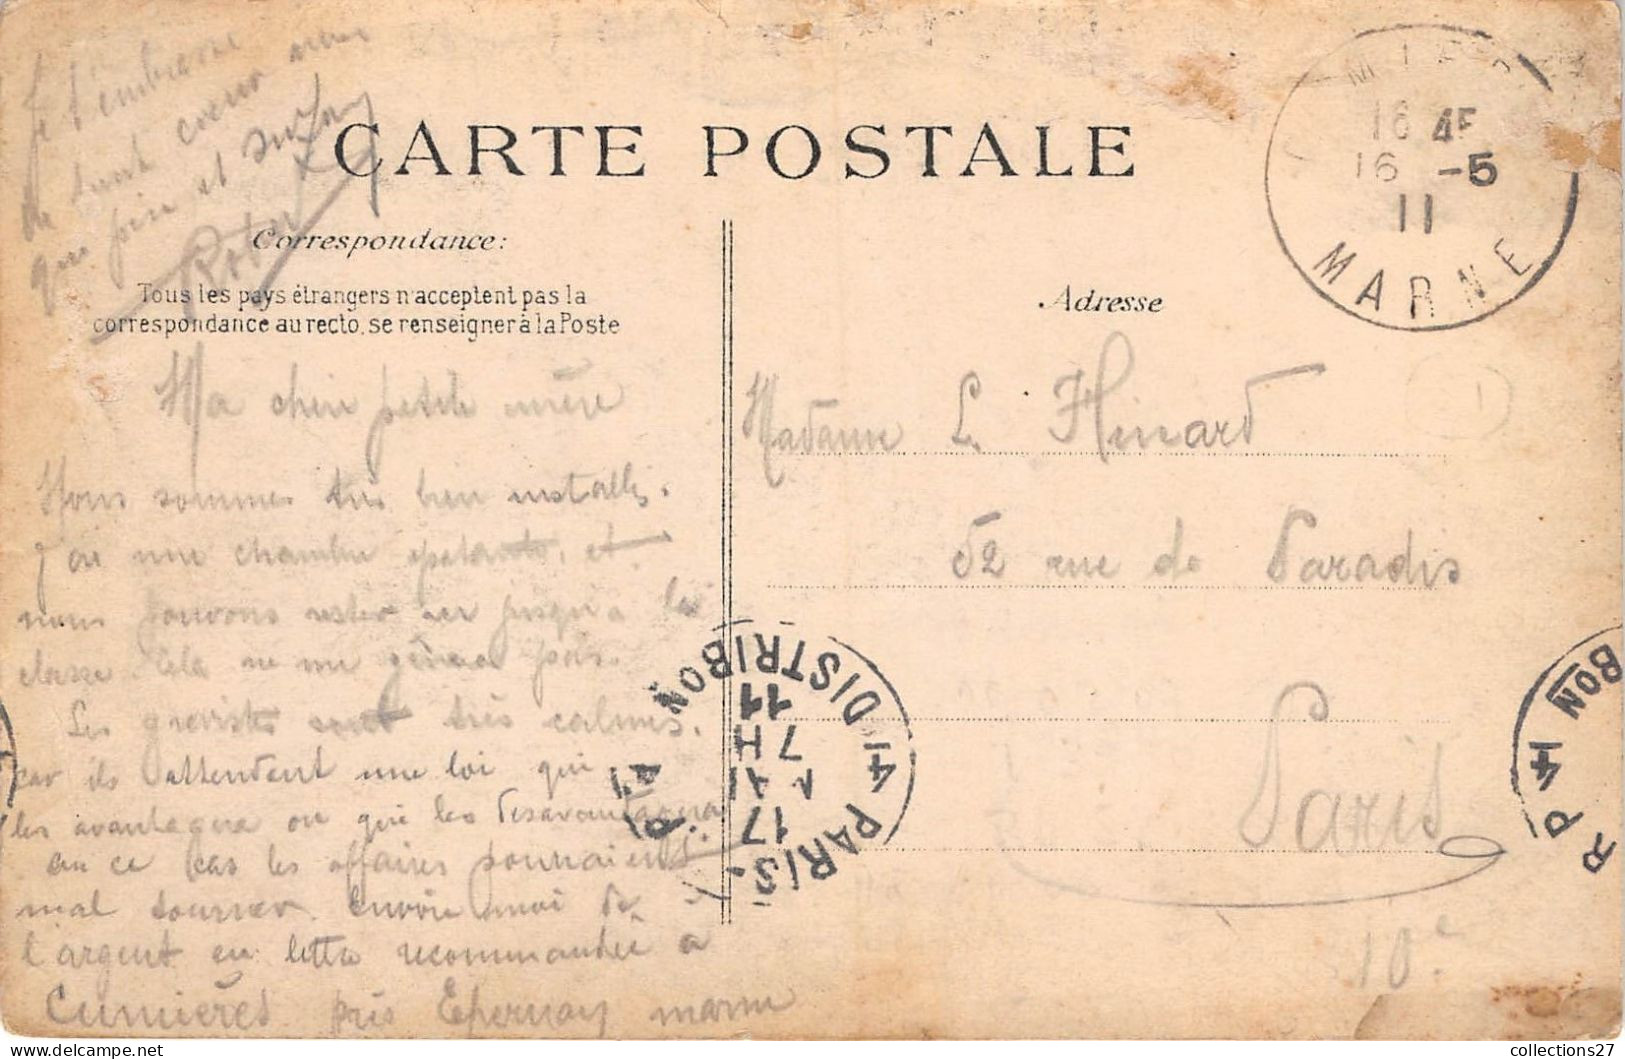 Je t'embrasse
de tout cœur ainsi
que père et Suzon
Robert
CARTE POSTALE
Correspondance:
Tous les pays étrangers n'acceptent pas la
correspondance au recto, se renseigner à la Poste
Ma chère petite mère
Nous sommes très bien installés.
J'ai une chambre épatante, et
nous pouvons rester ici jusqu'à la
classe. Cela ne me gênera pas.
Les grévistes sont très calmes.
car ils attendent une loi qui
les avantagera ou qui les désavantagera
en ce cas les affaires pourraient
mal tourner. Envoie moi de
l'argent en lettre recommandée à
Cumières près Epernay marne
Adresse
Madame L. Hinard
52 rue de Paradis
Paris
10e
16 45
16 -5
11
MARNE
PARIS
DISTRIBON
17
7H
11
R P 41
BON
collections27